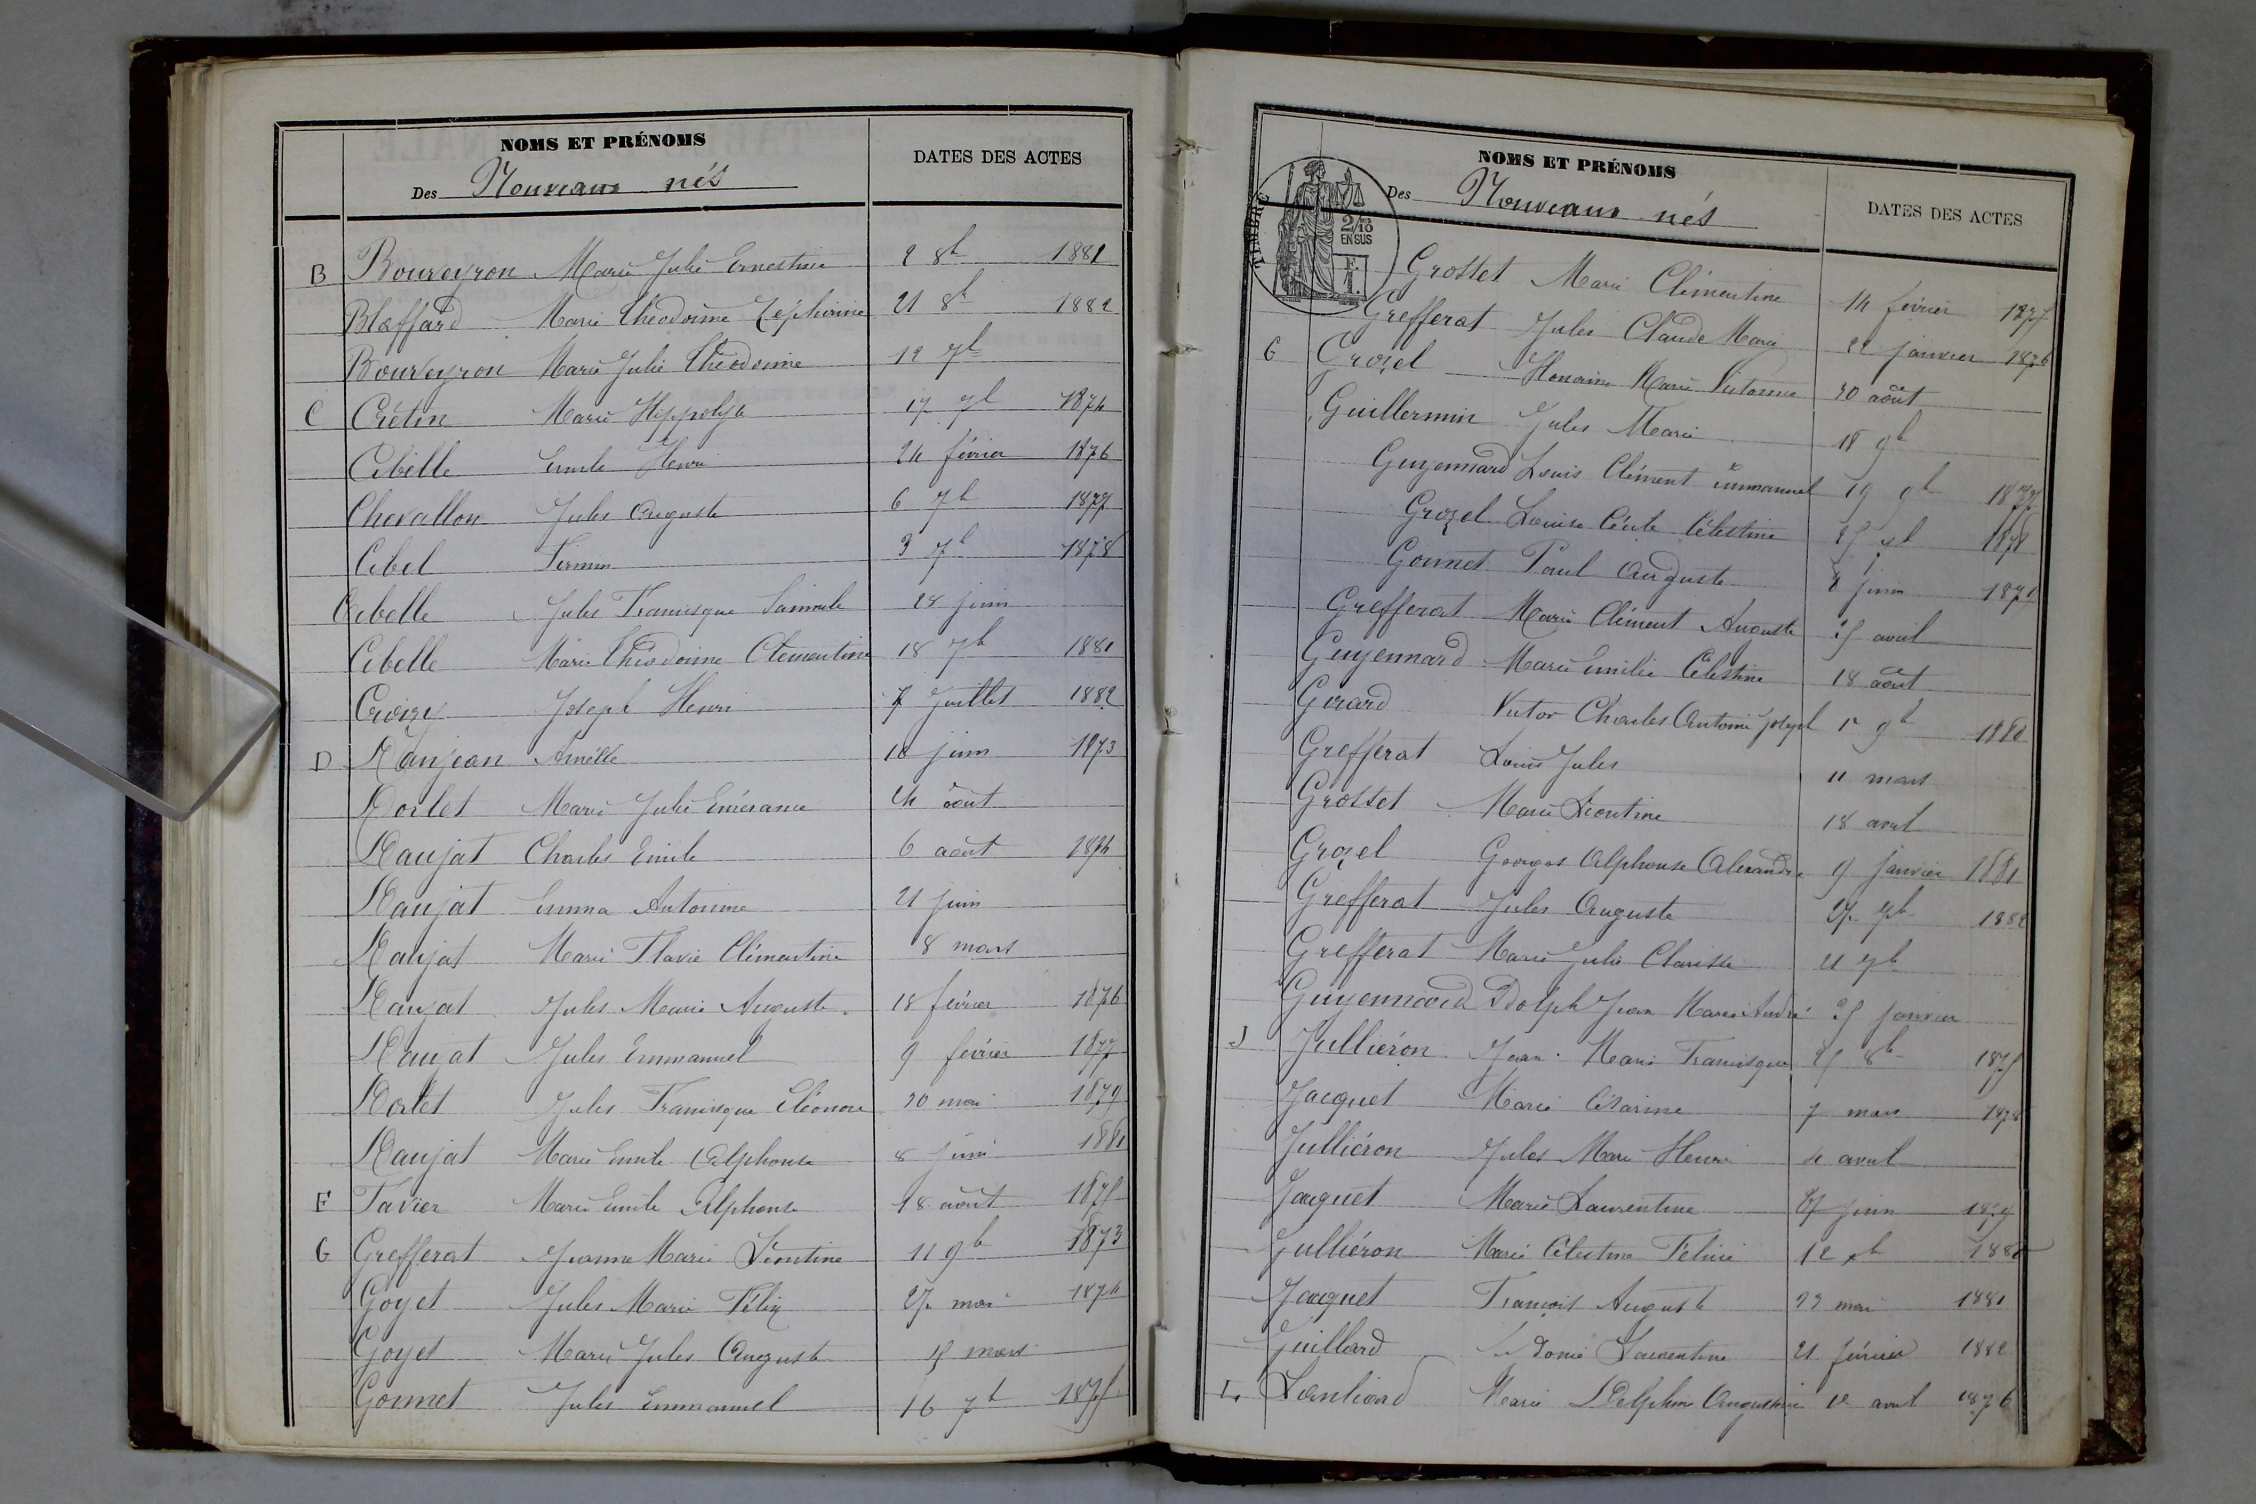 NOMS ET PRÉNOMS
Des Nouveaux nés
DATES DES ACTES
B Bourveyron Marie Julie Ernestine 2 8b 1881
Blaffard Marie Théodorine Zéphirine 21 8b 1882
Bourveyron Marie Julie Théodorine 12 7b
C Crétin Marie Hippolyte 17 7b 1874
Cibelle Emile Henri 24 février 1876
Chevallon Jules Auguste 6 7b 1877
Cibel Firmin 3 7b 1878
Cibelle Jules Francisque 28 juin
Cibelle Marie Théodorine Clementine 18 7b 1881
Joseph Henri 7 Juillet 1882
D Danjean 10 juin 1873
Dorlet Marie Julie 24 août
Daujat Charles Emile 6 août 1874
Daujat Emma Antonine 21 juin
Daujat Marie Flavie Clémentine 8 mars
Daujat Jules Marie Auguste 18 février 1876
Daujat Jules Emmanuel 9 février 1877
Dorlet Jules Francisque Eléonore 20 mai 1879
Daujat Marie Emile Alphonse 8 juin 1881
F Favier Marie Emile Alphonse 18 août 1875
G Grefferat Jeanne Marie Léontine 11 9b 1873
Goyet Jules Marie Félix 27 mai 1874
Goyet Marie Jules Auguste 15 mars
Gonnet Jules Emmanuel 16 7b 1875
NOMS ET PRÉNOMS
Des Nouveaux nés
DATES DES ACTES
TIMBRE
2/10
EN SUS
F.
1.
Grosset Marie Clémentine 14 février 1877
Grefferat Jules Claude Marie 22 janvier 1876
G Grozel Honorine Marie Victorine 30 août
Guillermin Jules Marie 18 9b
Guyennard Louis Clément Emmanuel 19 9b 1877
Grozel Louise Cécile Célestine 25 1878
Gonnet Paul Auguste 8 juin 1879
Grefferat Marie Clément Auguste 25 avril
Guyennard Marie Emilie Célestine 18 août
Girard Victor Charles Antoine Joseph 1r 9b 1880
Grefférat Louis Jules 11 mars
Grosset Marie Léontine 18 avril
Grozel Georges Alphonse Alexandre 9 janvier 1881
Grefferat Jules Auguste 27 7b 1882
Grefferat Marie Julie Clarisse 21 7b
Guyennard Adolphe Jean Marie André 25 janvier
J Julliéron Jean Marie Francisque 25 8b 1875
Jacquet Marie Césarine 7 mars 1878
Julliéron Jules Marie Henri 4 avril
Jacquet Marie Laurentine 17 juin 1879
Julliéron Marie Célestine Félicie 12 xb 1880
Jacquet François Auguste 23 mai 1881
Guillard Laurentine 21 février 1882
L Marie Delphine Augustine 12 avril 1876